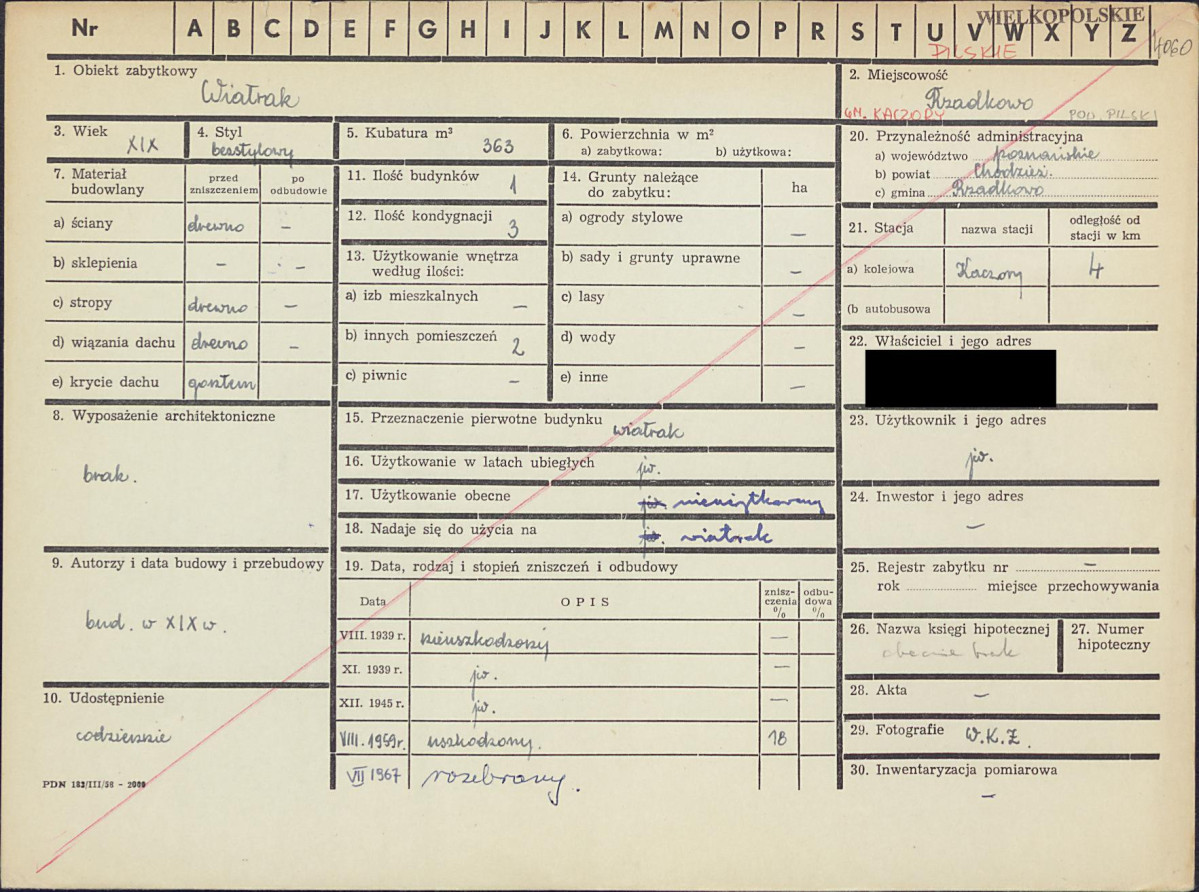 Nr A B C D E F G H I J K L M N O P R S T U V W X Y Z
WIELKOPOLSKIE
PILSKIE
1. Obiekt zabytkowy
Wiatrak
2. Miejscowość
Rzadkowo
GM. KACZORY POW. PILSKI
3. Wiek
XIX
4. Styl
bezstylowy
5. Kubatura m³
363
6. Powierzchnia w m²
a) zabytkowa: b) użytkowa:
7. Materiał budowlany
przed zniszczeniem
po odbudowie
a) ściany drewno –
b) sklepienia – –
c) stropy drewno –
d) wiązania dachu drewno –
e) krycie dachu gontem
8. Wyposażenie architektoniczne
brak.
9. Autorzy i data budowy i przebudowy
bud. w XIX w.
10. Udostępnienie
codziennie
PDN 182/III/58 - 2000
11. Ilość budynków 1
12. Ilość kondygnacji 3
13. Użytkowanie wnętrza
według ilości:
a) izb mieszkalnych –
b) innych pomieszczeń 2
c) piwnic –
14. Grunty należące
do zabytku:
ha
a) ogrody stylowe –
b) sady i grunty uprawne –
c) lasy –
d) wody –
e) inne –
15. Przeznaczenie pierwotne budynku wiatrak
16. Użytkowanie w latach ubiegłych jw.
17. Użytkowanie obecne jw. nieużytkowany
18. Nadaje się do użycia na jw. wiatrak
19. Data, rodzaj i stopień zniszczeń i odbudowy
Data OPIS znisz-czenia % odbu-dowa %
VIII. 1939 r. nieuszkodzony –
XI. 1939 r. jw. –
XII. 1945 r. jw. –
VIII. 1959 r. uszkodzony. 18
VII 1967 rozebrany.
20. Przynależność administracyjna
a) województwo poznańskie
b) powiat Chodzież.
c) gmina Rzadkowo
21. Stacja
nazwa stacji
odległość od
stacji w km
a) kolejowa Kaczory 4
(b autobusowa
22. Właściciel i jego adres
23. Użytkownik i jego adres
jw.
24. Inwestor i jego adres
–
25. Rejestr zabytku nr –
rok miejsce przechowywania
26. Nazwa księgi hipotecznej
obecnie brak
27. Numer
hipoteczny
28. Akta –
29. Fotografie W.K.Z.
30. Inwentaryzacja pomiarowa
–